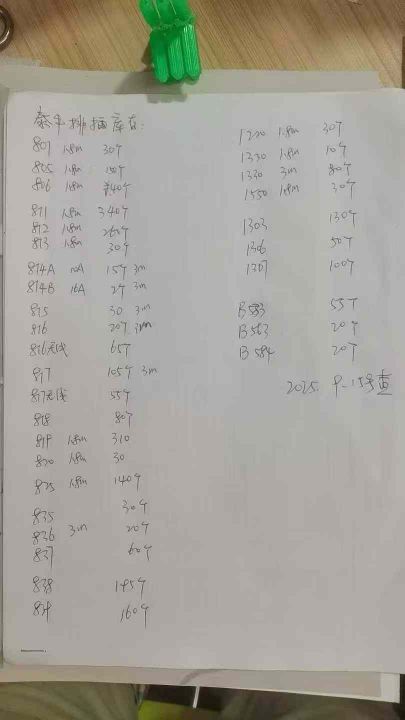 泰丰排插库存:
807 1.8m 30个
805 1.8m 100个
806 1.8m 40个
811 1.8m 340个
812 1.8m 260个
813 1.8m 30个
814A 10A 15个 3m
814B 16A 2个 3m
815 30 3m
816 20个 3m
816无线 65个
817 105个 3m
817无线 55个
818 80个
819 1.8m 310
820 1.8m 30
825 1.8m 140个
835 30个
836 3m 20个
837 60个
838 145个
839 160个
1220 1.8m 30个
1330 1.8m 10个
1330 3m 80个
1550 1.8m 30个
1303 130个
1306 50个
1307 100个
B583 55个
B563 20个
B584 20个
2025. 9-15号查